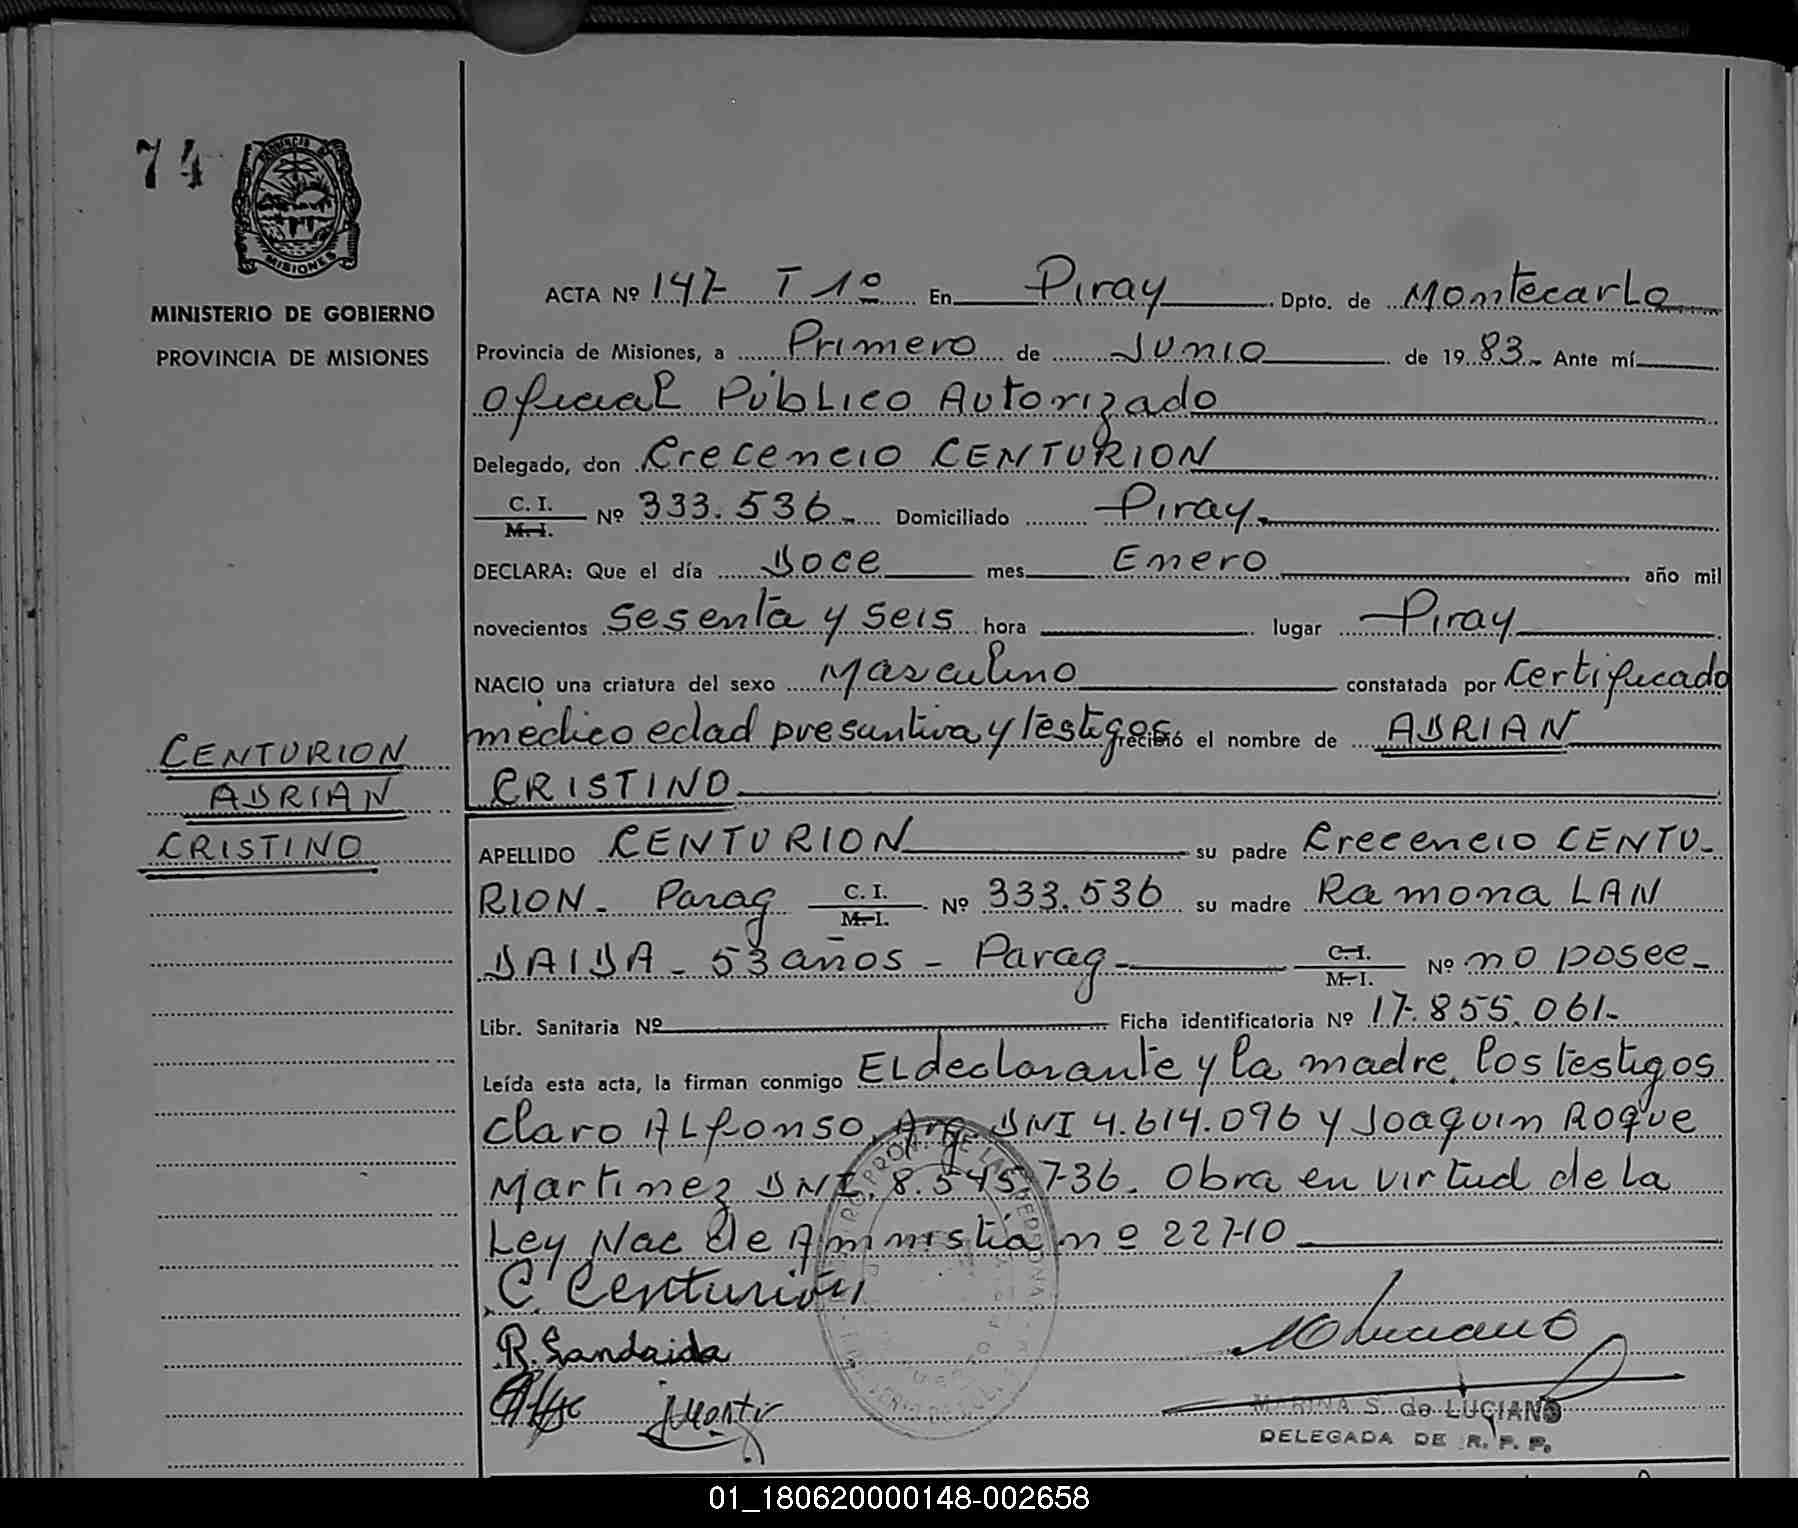 74
PROVINCIA DE
MISIONES
MINISTERIO DE GOBIERNO
PROVINCIA DE MISIONES
CENTURION
ADRIAN
CRISTINO
ACTA Nº 147 T 1º En Piray Dpto. de Montecarlo
Provincia de Misiones, a Primero de Junio de 1983.- Ante mí
oficial Público Autorizado
Delegado, don Crecencio CENTURION
C. I. M. I. Nº 333.536 - Domiciliado Piray.
DECLARA: Que el día Doce mes Enero año mil
novecientos sesenta y seis hora lugar Piray
NACIO una criatura del sexo Masculino constatada por certificado
médico edad presuntiva y testigos recibió el nombre de ADRIAN
CRISTINO
APELLIDO CENTURION su padre Crecencio CENTU-
RION - Parag C. I. M. I. Nº 333.536 su madre Ramona LAN
DAIDA - 53 años - Parag - C. I. M. I. Nº no posee -
Libr. Sanitaria Nº Ficha identificatoria Nº 17.855.061-
Leída esta acta, la firman conmigo El declarante y la madre, los testigos
Claro Alfonso, Arg. DNI 4.614.096 y Joaquin Roque
Martinez DNI. 8.545.736. Obra en virtud de la
Ley Nac de Amnistía nº 22710
C. Centurión
R. Landaida
MARINA S. de LUCIANO
DELEGADA DE R. P. P.
01_180620000148-002658